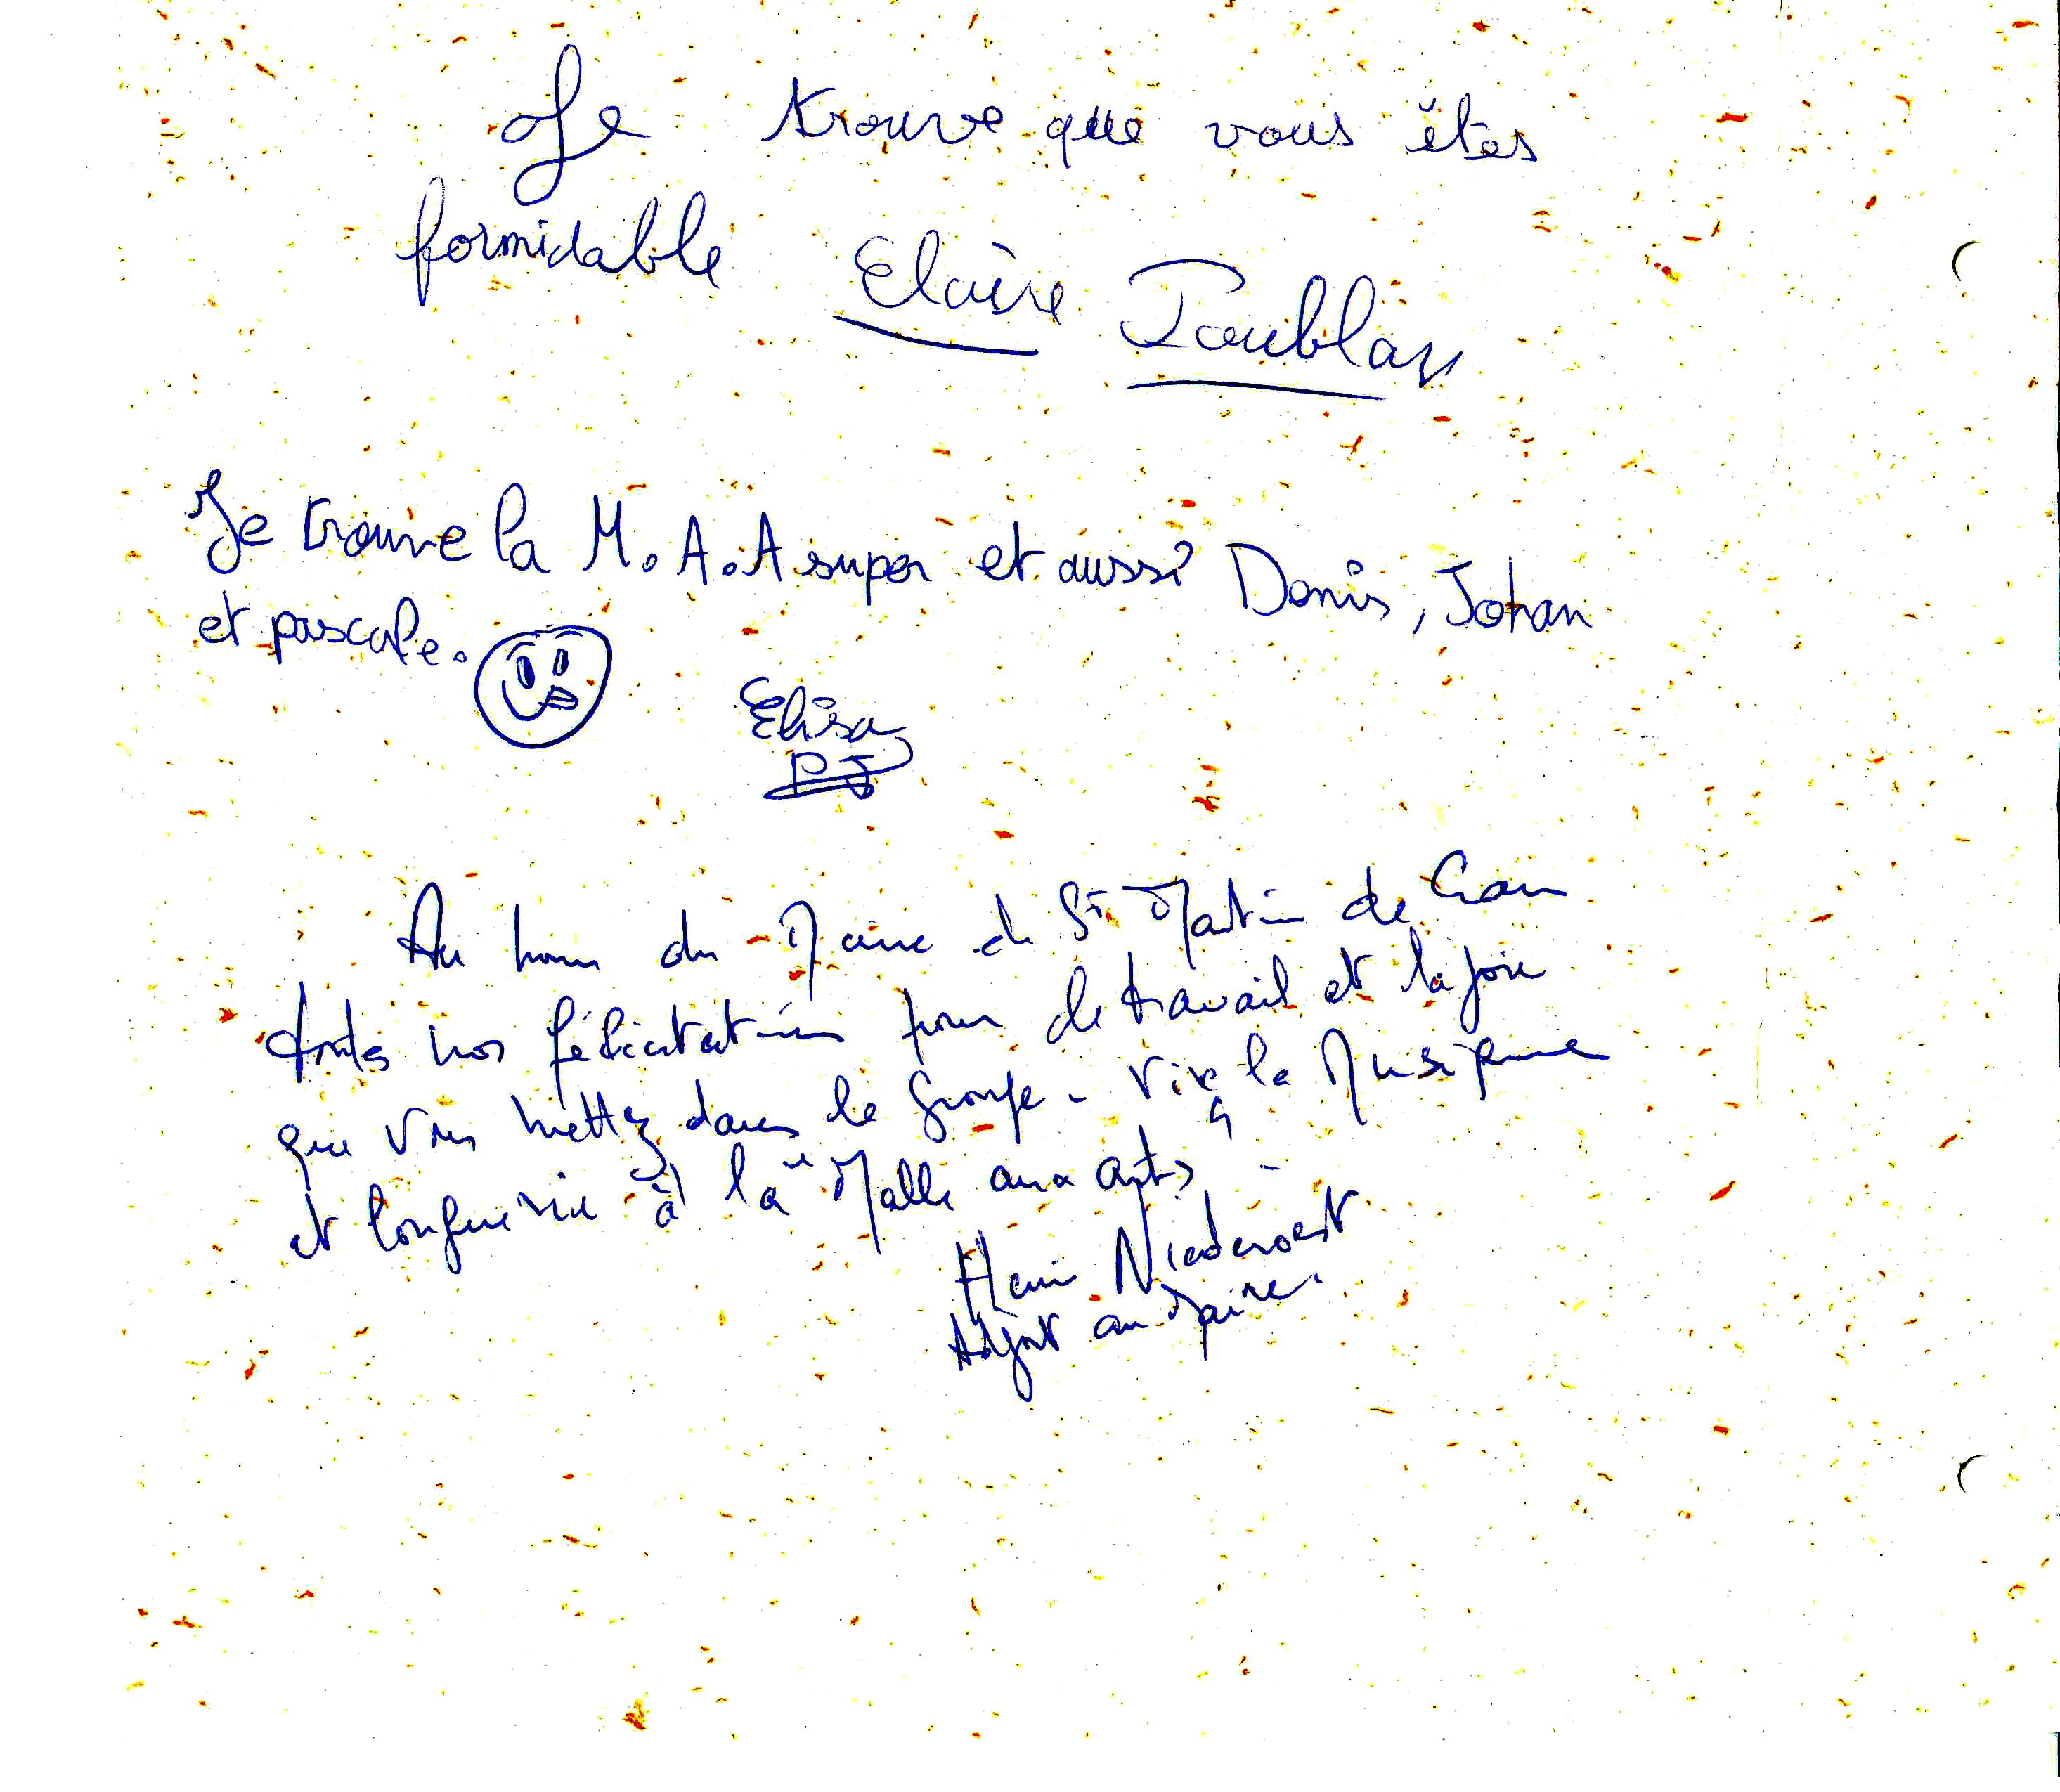 Je trouve que vous êtes
formidable Claire Joublan
Je trouve la M.A.A super et aussi Denis, Johan
et pascale.
Elisa
P J
Au nom du Maire de St Martin de Crau
toutes nos félicitations pour le travail et la joie
que vous mettez dans le groupe - Vive la Musique
et longue vie à la "Malle aux arts" -
Henri Niederoest
Adjoint au Maire.